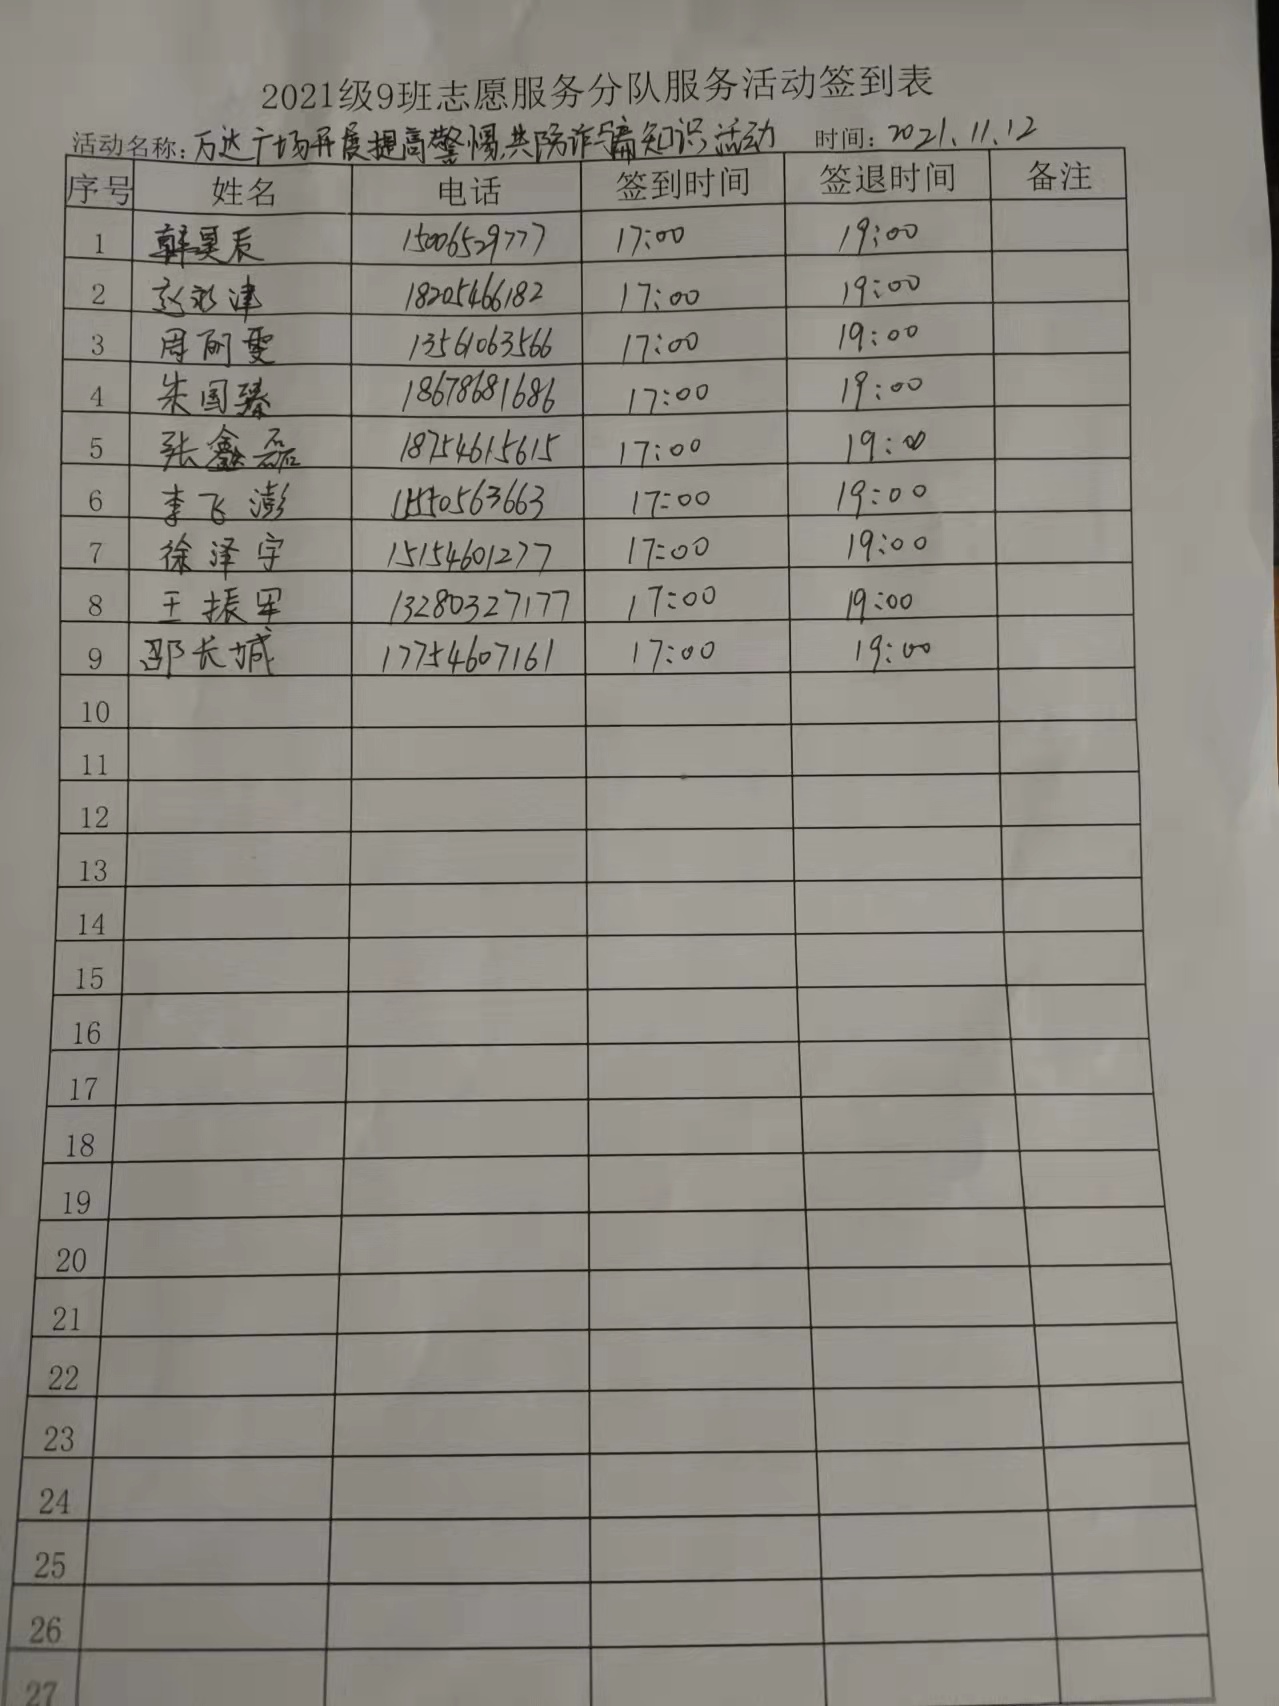 2021级9班志愿服务分队服务活动签到表
活动名称: 万达广场开展提高警惕,共防诈骗知识活动 时间: 2021.11.12
序号 姓名 电话 签到时间 签退时间 备注
1 韩昊辰 15006529777 17:00 19:00
2 18205466182 17:00 19:00
3 周丽雯 13561063566 17:00 19:00
4 朱国臻 18678681686 17:00 19:00
5 张鑫磊 18754615615 17:00 19:00
6 李飞澎 17:00 19:00
7 徐泽宇 15154601277 17:00 19:00
8 王振军 13280327177 17:00 19:00
9 邵长城 17754607161 17:00 19:00
10
11
12
13
14
15
16
17
18
19
20
21
22
23
24
25
26
27